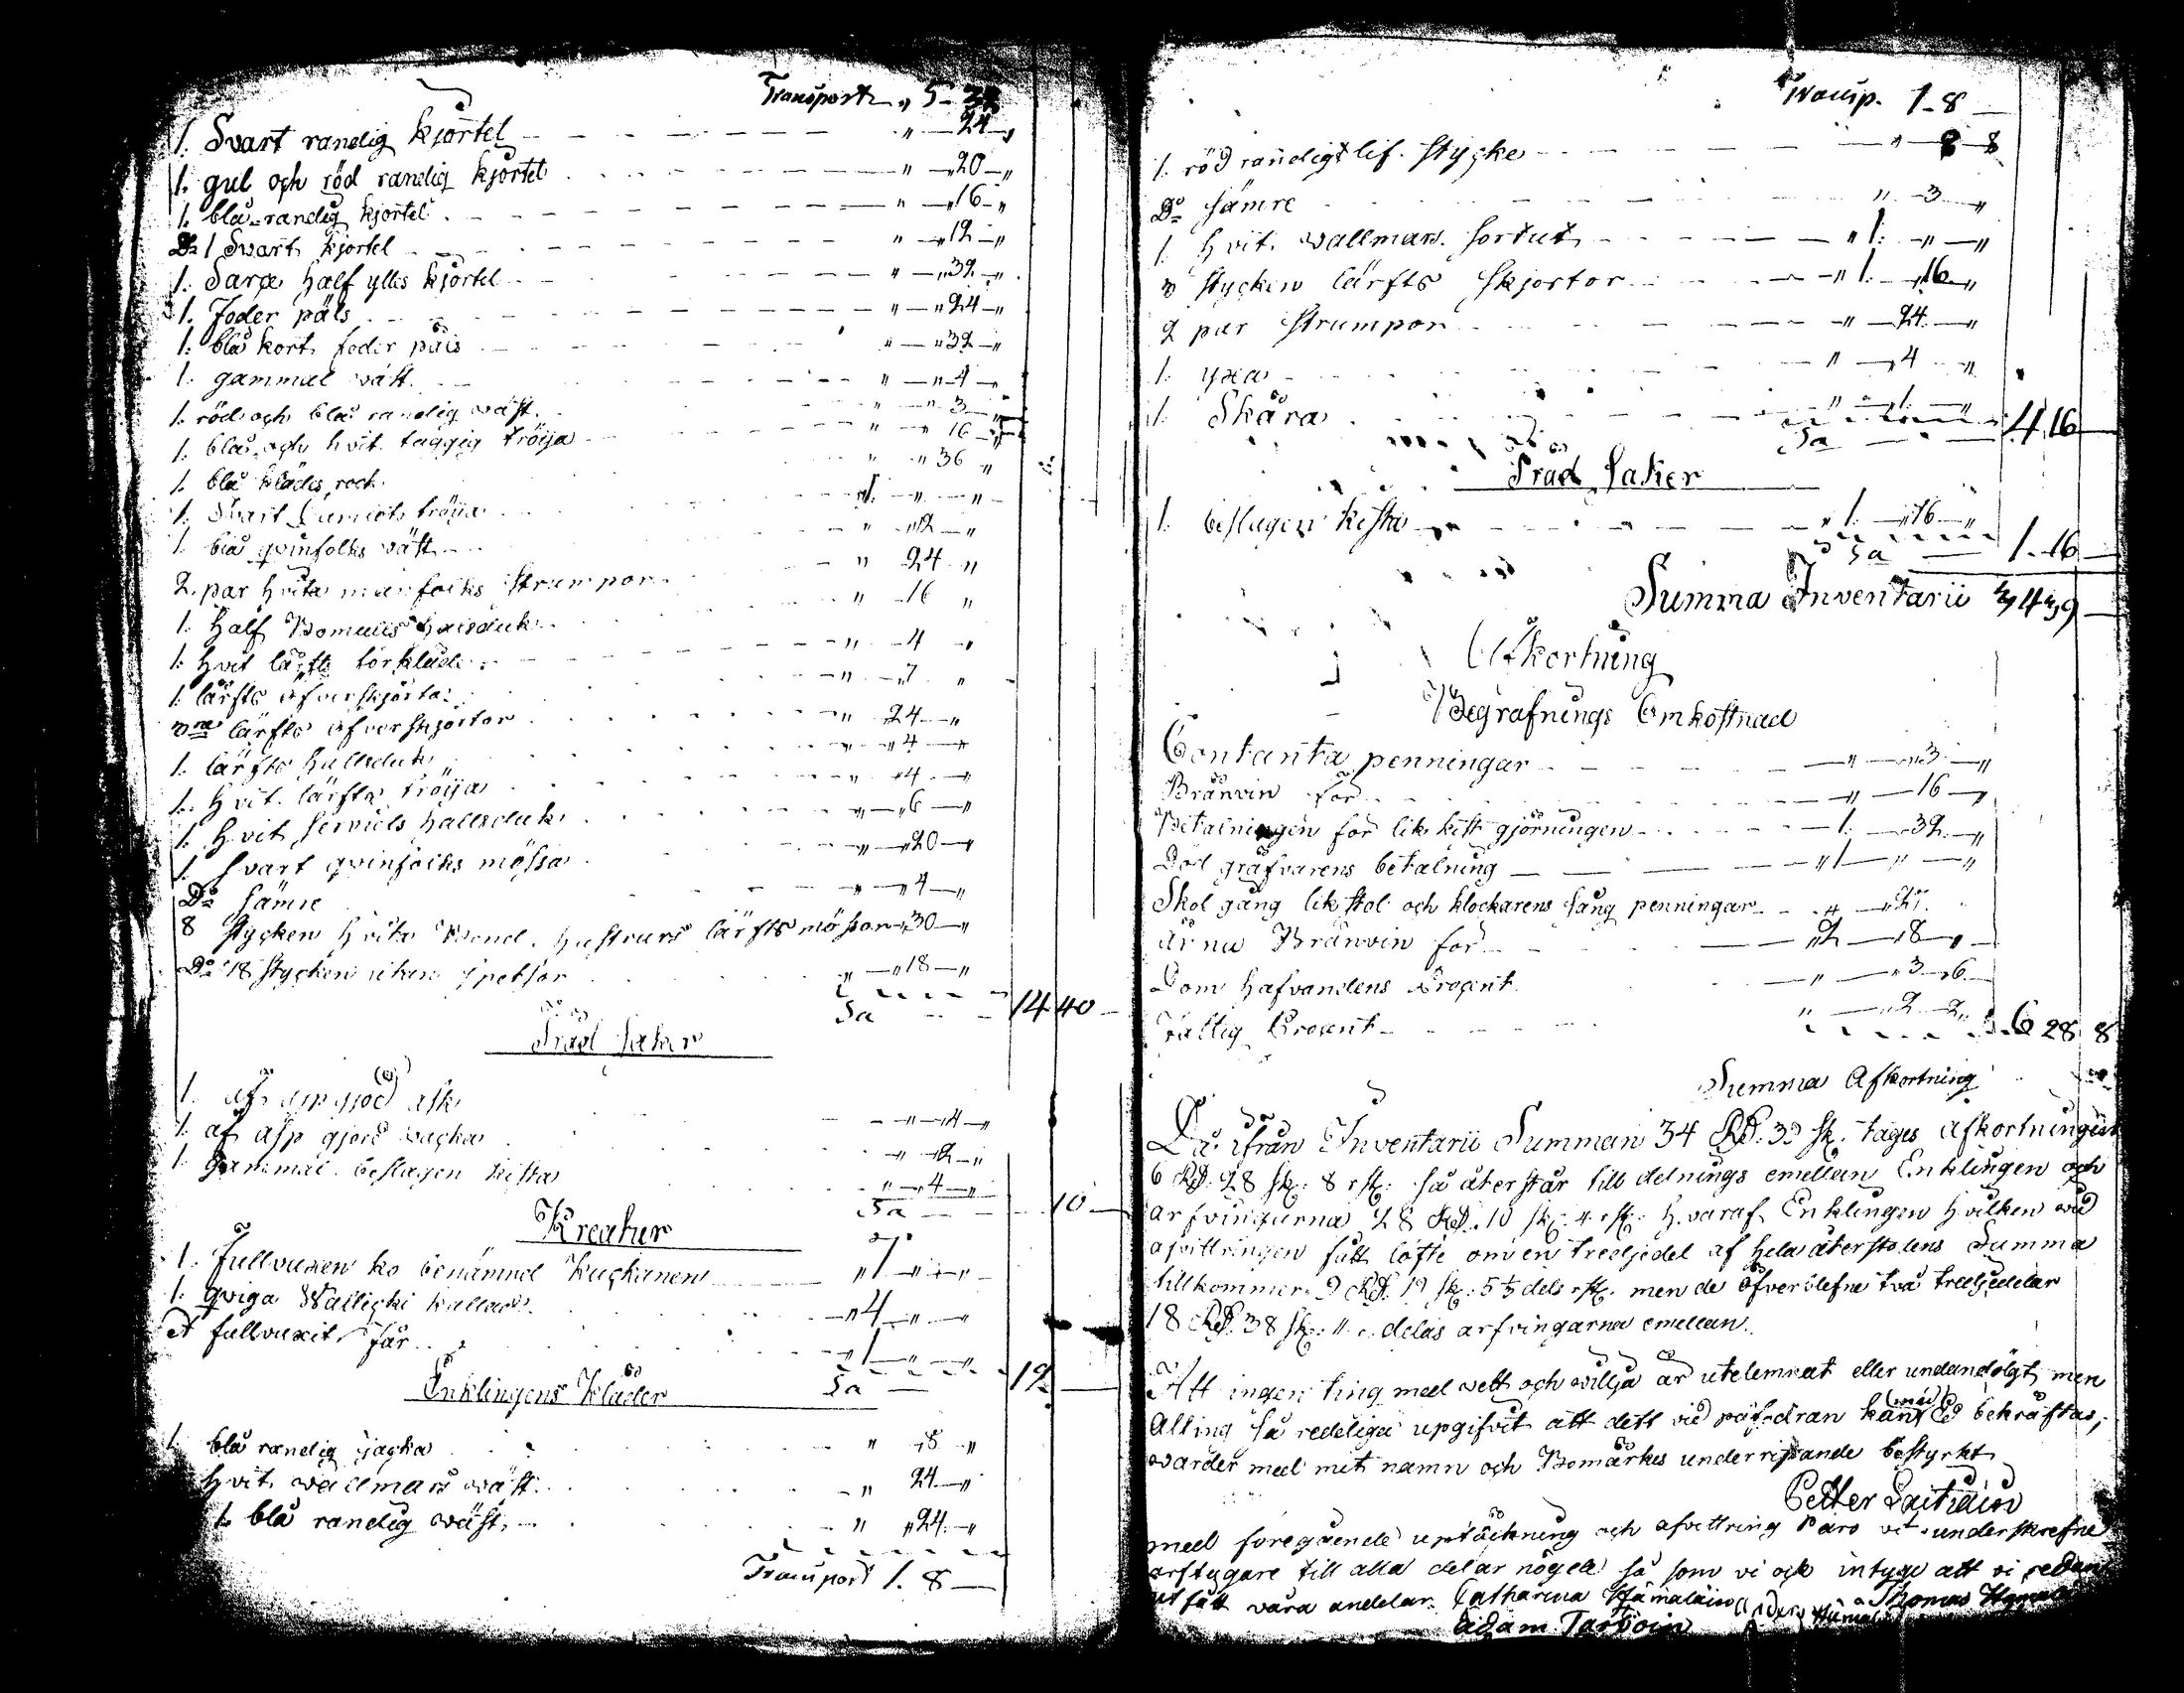 Transport „ 5- 32
1. Svart randig kjortel „ — 24 „
1. gul och röd randig kjortel „ — „20 — „
1. blå-randig kjortel „ — „16 — „
Do 1 Svart kjortel „ — „12 — „
1. Sarge half ylles kjortel „ — „32 — „
1. Foder päls „ — „24 — „
1. blå kort foder päls „ — „32 — „
1. gammal wäst „ — „4 — „
1. röd och blå randig wäst „ — „3 — „
1. blå och hvit taggig tröija „ — „16 — „
1. blå klädes rock „ „36 „
1. Svart tröija „1. — „ — „
1. blå qvinfolks wäst „ — „12 — „
2. par hvita manfolks strumpor „ 24 „
1. Half Bomulls halsduk „ 16 „
1. hvit lärfts törkläde „ — 4 — „
1. lärfts öfverskjorta „ — „7 „
lärfts öfverskjortor „ 24 — „
1. lärfts hallsduk „ — „4 — „
1. hvit lärfts tröija „ — „4 — „
1. hvit serviels hallsduk „ — „6 — „
1. Svart qvinfolks mössa „ — „20 — „
Do sämre „ — „4 — „
8 stycken hvita Bond. hustrurs lärfts mössor „30 — „
Do 18 stycken utan spetsor „ — „18 — „
Sa — 14 40 —
Träd saker
1. af asp gjord ask „ — „4 — „
1. af asp gjord vagka „ — „2 — „
1. gammal beslagen kista „ — „4 — „
Sa — 10 —
Kreatur
1. Fullvuxen ko benämnd Kuckanen „7 — „ — „
1. qviga Wallicki kallad „4 — „ — „
et fullvuxit får „1 — „ — „
Sa — 12 —
Enklingens Kläder
1. blå randig jacka „ „8 „
hvit wallmars wäst „ 24 — „
1. blå randig wäst „ „24 — „
Transport 1. 8 —
Transp. 1 - 8
1. röd randigt lif. stycke „ 8 8
Do sämre „ — 3 — „
1 hvit wallmars sortut „1: — „ — „
stycken lärfts skjortor „1. — „16 — „
2 par strumpor „ — 24 — „
1. yxa „ — „4 — „
1. Skära „ — „1. — „
Sa — 4 16 —
Träd saker
1. beslagen kista „1. — „16 — „
Sa — 1. 16 —
Summa Inventarii 34 39 —
Afkortning
Begrafnings Omkostnad
Contanta penningar — „ — „3 — „
Bränvin för — „ — 16 — „
Betalningen för lik kist gjörningen — 1. — 32 — „
Död gräfvarens betalning „1 — „ — „
Skol gång lik stol och klockarens sång penningar „ — „21.
ärnu Bränvin för „2 — „8 — „
Dom hafvandens Procent „ — „3 — „6
Fattig Procent „ — „2 — 2 „ 6 28 8
Summa Afkortning
Då ifrån Inventarii Summan 34 RD. 39 sk. tages afkortningen
6 RD. 28 sk. 8 rst. så återstår till delnings emellan Enklingen och
arfvingarna 28 RD. 10 sk. 4 rst. hvaraf Enklingen hvilken vid
afvittringen fått löfte om en tredjedel af hela återstolens Summa
tillkommer 9 RD. 19 sk. 5 1/3 dels rst. men de öfverblefne två tredjedelar
18 RD. 38 sk. „ . delas arfvingarna emellan.
Att ingen ting med vett och willja är utelemnat eller undandölgt, men
Allting så redeligen upgifvit att dett vid påfodran kan (med) Ed bekräftas,
warder med mit namn och Bomärkes underritande bestyrkt
Petter Laitinen
med föregående uptäckning och afvittring äro vi underskrefne
arftagare till alla delar nögda så som vi ock intyga att vi redan
utfått våra andelar. Catharina Hämäläinen Thomas
Adam Tarvoin